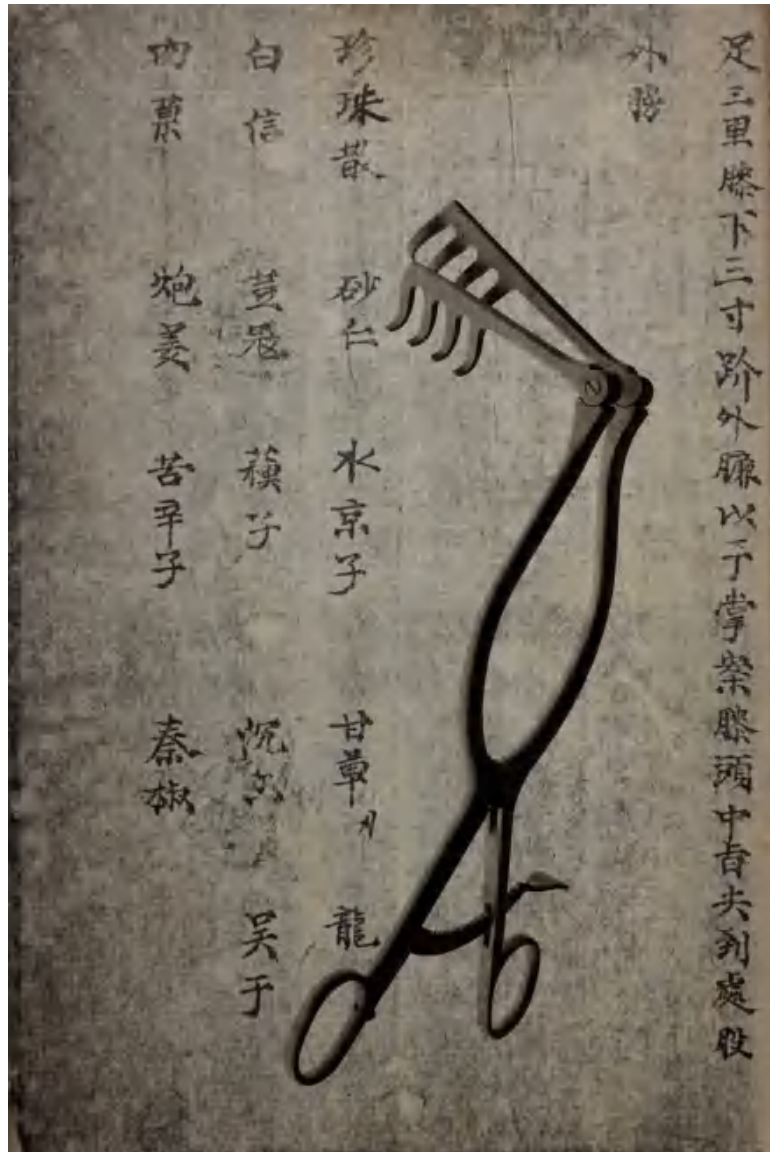 足三里膝下三寸䯒外廉以手掌按膝頭中旨夬到處股
外勝
珍珠散 砂仁 水京子 甘草 龍
白信 荳蔻 蘱子 沉 吴于
肉菓 炮姜 苦辛子 秦椒